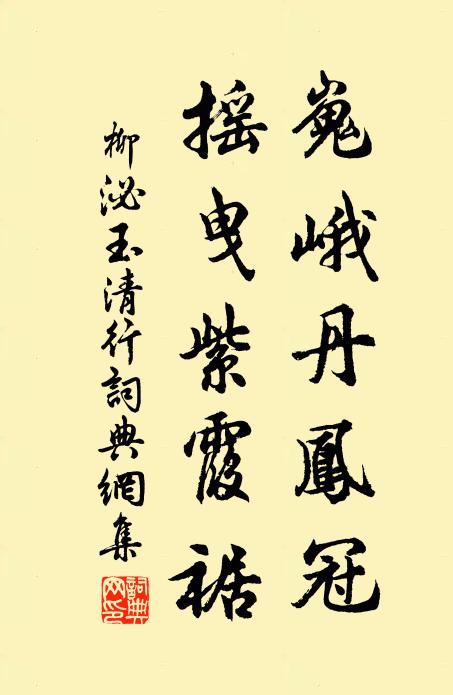 嵬峨丹鳳冠
摇曳紫霞裾
柳泌玉清行詞典網集
詞典網印